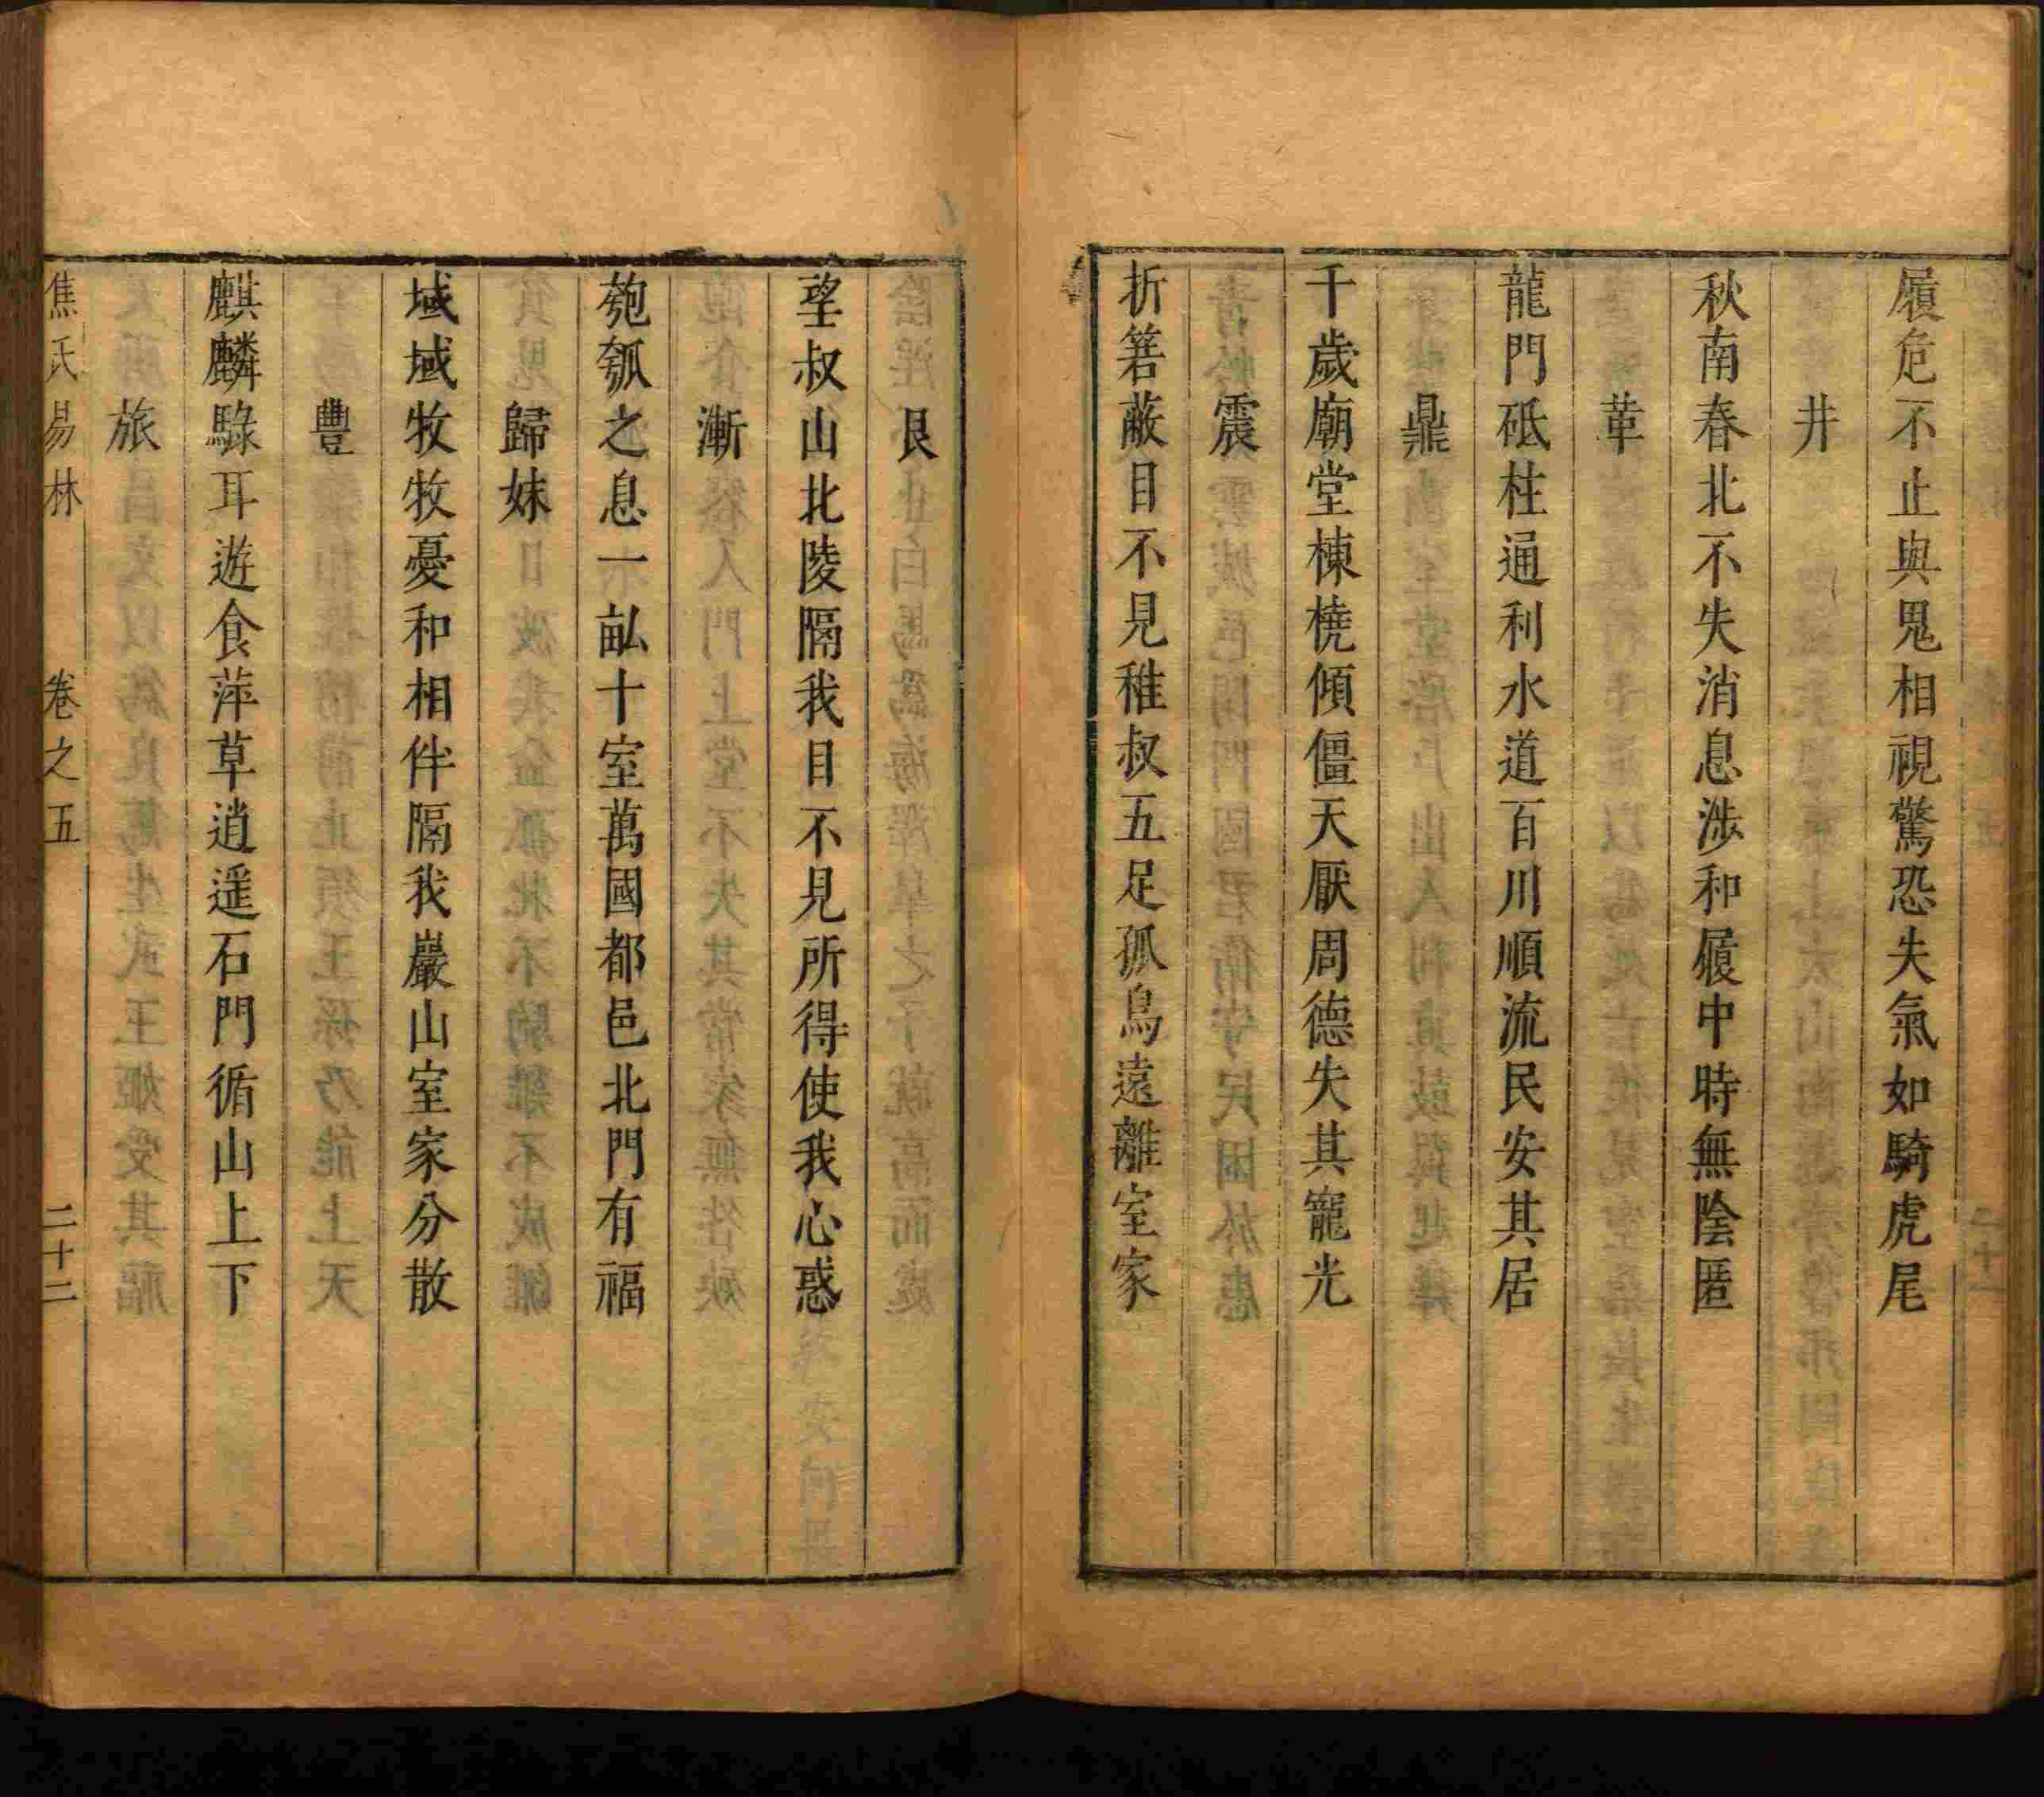 履危不止與鬼相視驚恐失氣如騎虎尾
井
秋南春北不失消息涉和履中時無陰匿
革
龍門砥柱通利水道百川順流民安其居
鼎
千歲廟堂棟橈傾僵天厭周德失其寵光
震
折箬蔽目不見稚叔五足孤鳥遠離室家
艮
望叔山北陵隔我目不見所得使我心惑
漸
匏瓠之息一畝十室萬國都邑北門有福
歸妹
域域牧牧憂和相伴隔我巖山室家分散
豐
麒麟騄耳遊食萍草逍遥石門循山上下
旅
焦氏易林 卷之五 二十二